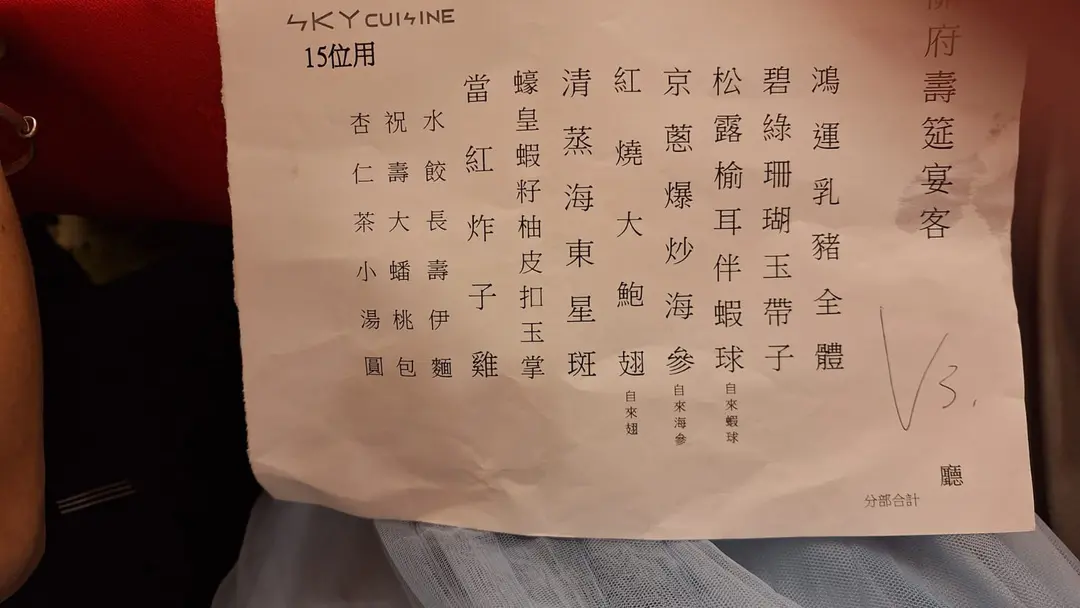 SKY CUISINE
15位用
府壽筵宴客
V3.
廳
分部合計
鴻運乳豬全體
碧綠珊瑚玉帶子
松露榆耳伴蝦球 自來蝦球
京蔥爆炒海參 自來海參
紅燒大鮑翅 自來翅
清蒸海東星斑
蠔皇蝦籽柚皮扣玉掌
當紅炸子雞
水餃長壽伊麵
祝壽大蟠桃包
杏仁茶小湯圓